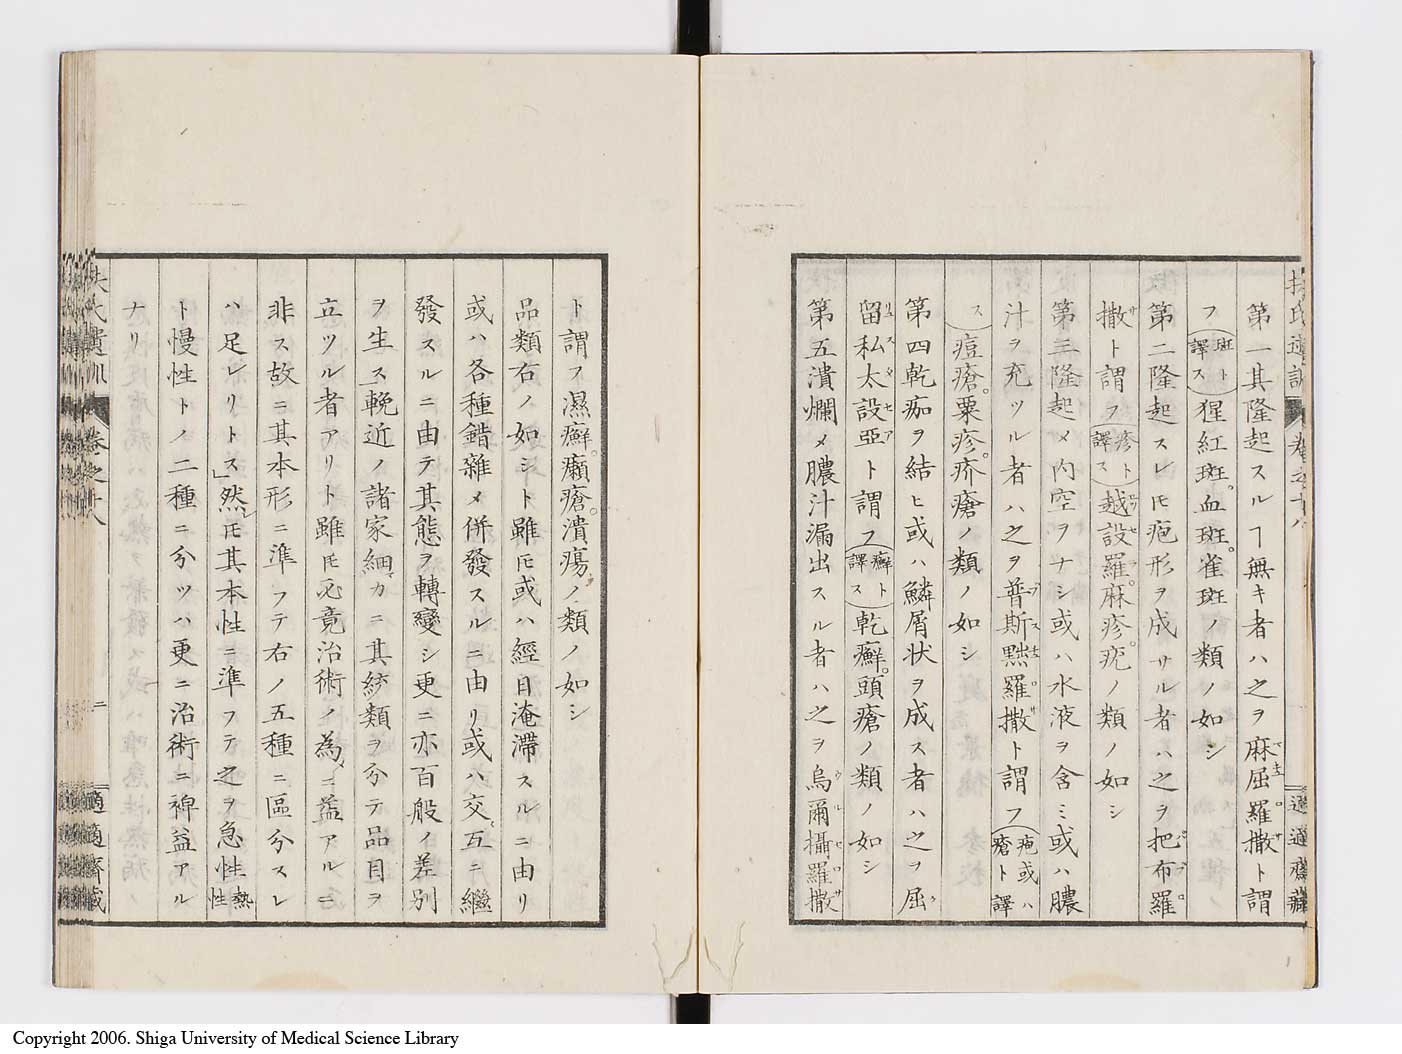 第一其隆起スルヿ無キ者ハ之ヲ麻屈羅撒ト謂
フ(斑ト譯ス)猩紅斑。血斑。雀斑ノ類ノ如シ
第二隆起スレ𪜈疤形ヲ成サル者ハ之ヲ把布羅
撒ト謂フ(疹ト譯ス)越設羅。麻疹。疣ノ類ノ如シ
第三隆起メ内空ヲナシ或ハ水液ヲ含ミ或ハ膿
汁ヲ充ツル者ハ之ヲ普斯黙羅撒ト謂フ(疱或ハ瘡ト譯
ス)痘瘡。粟疹。疥瘡ノ類ノ如シ
第四乾痂ヲ結ヒ或ハ鱗屑状ヲ成ス者ハ之ヲ屈
留私太設亞ト謂フ(癬ト譯ス)乾癬。頭瘡ノ類ノ如シ
第五潰爛メ膿汁漏出スル者ハ之ヲ烏爾攝羅撒
ト謂フ濕癬。癩瘡。潰瘍ノ類ノ如シ
品類右ノ如シト雖𪜈或ハ經日淹滞スルニ由リ
或ハ各種錯雜メ併發スルニ由リ或ハ交互ニ繼
發スルニ由テ其態ヲ轉變シ更ニ亦百般ノ差別
ヲ生ス輓近ノ諸家細カニ其統類ヲ分テ品目ヲ
立ツル者アリト雖𪜈必竟治術ノ為ニ益アルニ
非ス故ニ其本形ニ準フテ右ノ五種ニ區分スレ
ハ足レリトス」然𪜈其本性ニ準フテ之ヲ急性熱性
ト慢性トノ二種ニ分ツハ更ニ治術ニ裨益アル
ナリ
扶氏遺訓 卷之十八
二
適適齋藏
Copyright 2006. Shiga University of Medical Science Library